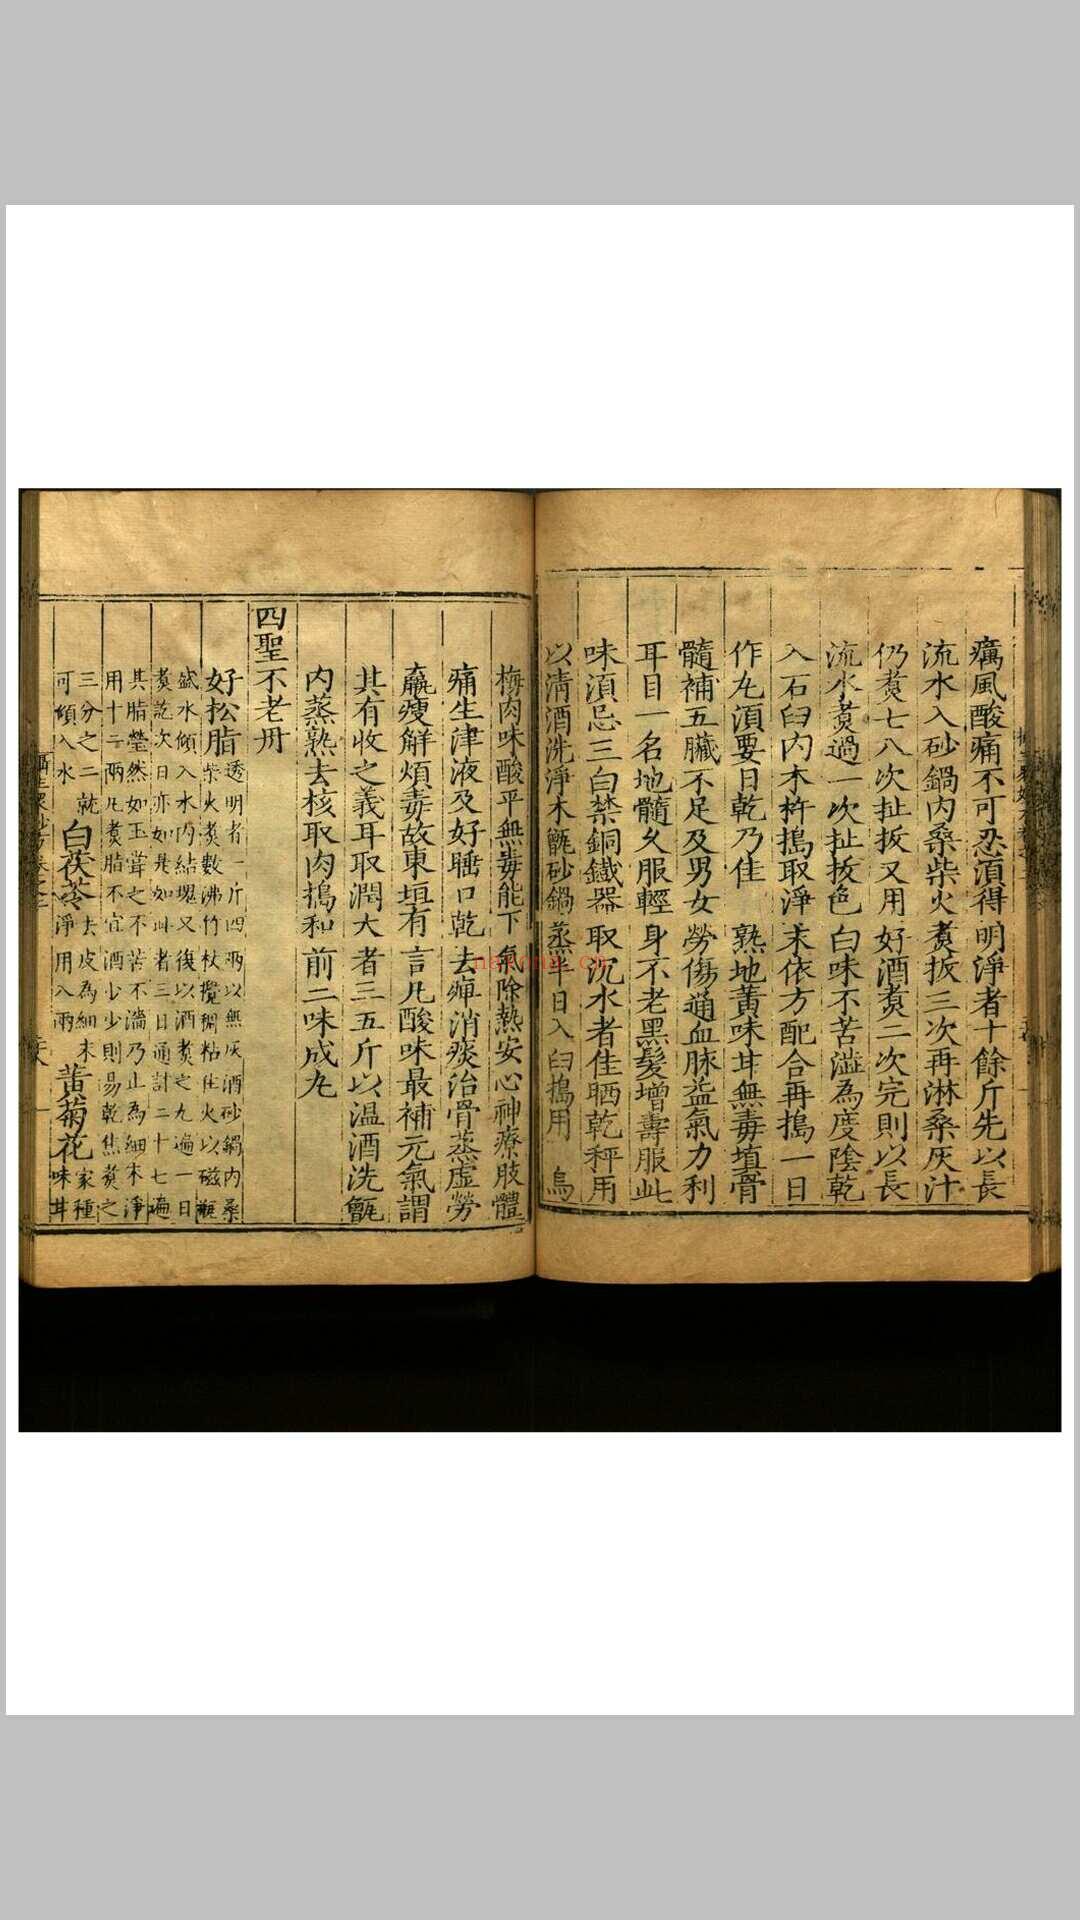 癘風酸痛不可忍湏得明淨者十餘斤先以長
流水入砂鍋内桑柴火煑扳三次再淋桑灰汁
仍煑七八次扯扳又用好酒煑二次完則以長
流水煑過一次扯拔色白味不苦澁為度陰乾
入石臼内木杵搗取淨末依方配合再搗一日
作丸湏要日乾乃佳　熟地黄味甘無毒填骨
髓補五臟不足及男女勞傷通血脉益氣力利
耳目一名地髓乆服輕身不老黑髮增壽服此
味湏忌三白禁銅鐡器取沉水者佳晒乾秤用
以清酒洗淨木甑砂鍋蒸半日入臼搗用　烏
梅肉味酸平無毒能下氣除熱安心神療肢體
痛生津液及好唾口乾去痺消痰治骨蒸虚勞
羸瘦解煩毒故東垣有言凡酸味最補元氣謂
其有收之義耳取潤大者三五斤以温酒洗甑
内蒸熟去核取肉搗和前二味成丸
四聖不老丹
好松脂透明者一斤四兩以無灰酒砂鍋内桑
柴火煑數沸竹杖攪稠粘住火以磁瓶
盛水傾入水内結塊又復以酒煑之九遍一日
煑訖次日亦如是如此者三日通計二十七遍
其脂瑩然如玉嘗之不苦不澁乃止為細末淨
用十二兩凡煑脂不宜酒少少則易乾焦煑之
三分之二就
可傾入水　白茯苓去皮為細末
淨用八兩　黄菊花家種
味甘